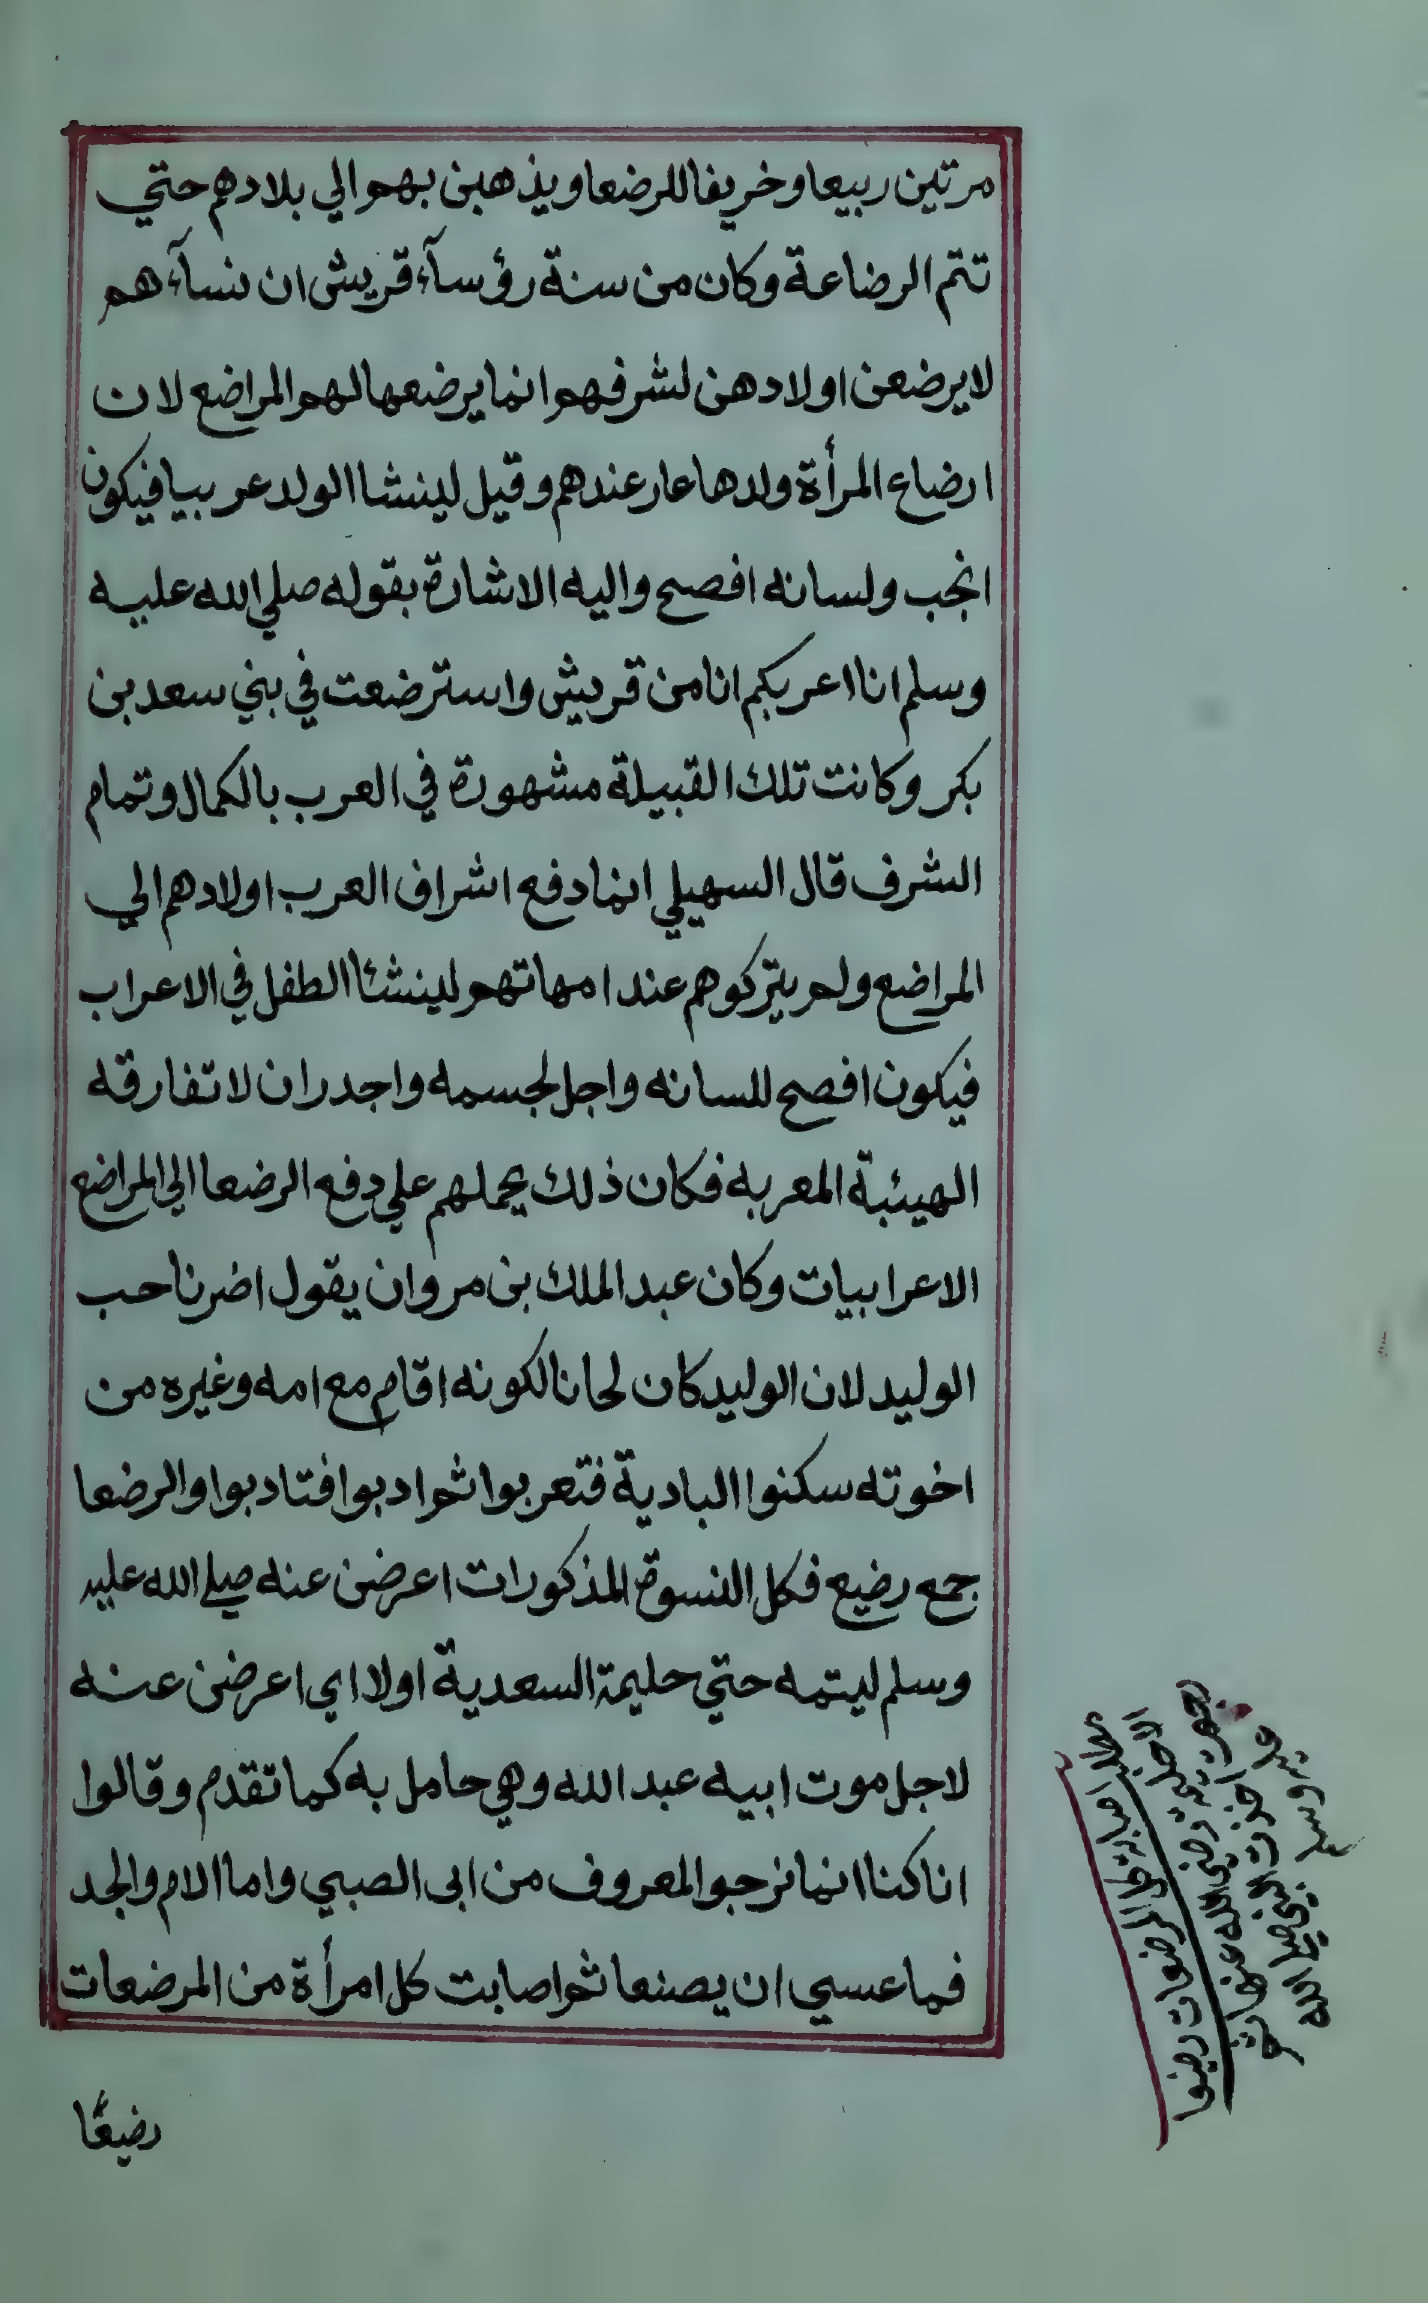 مرتين ربيعا وخريفا للرضعا ويذهبن بهم الي بلادهم حتي
تتم الرضاعة وكان من سنة رؤسآء قريش ان نسآءهم
لا يرضعن اولادهن لشرفهم انما يرضعها لهم المراضع لان
ارضاع المرأة ولدها عار عندهم وقيل لينشا الولد عربيا فيكون
انجب ولسانه افصح واليه الاشارة بقوله صلي الله عليه
وسلم انا اعربكم انا من قريش واسترضعت في بني سعد بن
بكر وكانت تلك القبيلة مشهورة في العرب بالكمال وتمام
الشرف قال السهيلي انما دفع اشراف العرب اولادهم الي
المراضع ولم يتركوهم عند امهاتهم لينشئا الطفل في الاعراب
فيكون افصح للسانه واجل لجسمه واجدر ان لا تفارقه
الهيئبة المعربه فكان ذلك يحملهم علي دفع الرضعا الي المراضع
الاعرابيات وكان عبد الملك بن مروان يقول اضرنا حب
الوليد لان الوليد كان لحانا لكونه اقام مع امه وغيره من
اخوته سكنوا البادية فتعربوا ثم ادبوا فتادبوا والرضعا
جمع رضيع فكل النسوة المذكورات اعرضن عنه صلي الله عليه
وسلم ليتمه حتي حليمة السعدية اولا اي اعرضن عنه
لاجل موت ابيه عبد الله وهي حامل به كما تقدم وقالوا
انا كنا انما نرجو المعروف من ابى الصبي واما الام والجد
فما عسي ان يصنعا ثم اصابت كل امرأة من المرضعات
رضيعًا
مطلب اصابة كل المرضعات رضيعا
الا حليمة رضي الله عنها ثم
رجعت اخذت النبي صلي الله
عليه وسلم